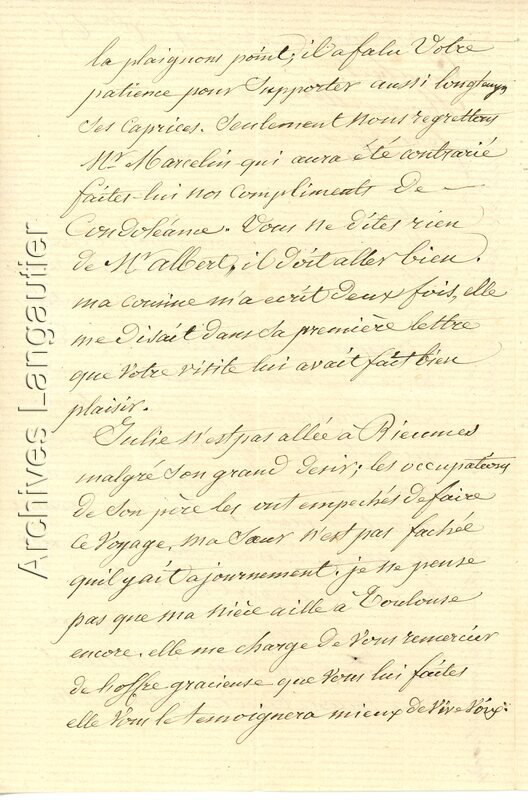 la plaignons point, il a falu Votre
patience pour Supporter aussi longtemps
Ses Caprices. Seulement nous regrettons
Mr Marcelin qui aura été contrarié
faites-lui nos Compliments de
Condoléance. Vous ne dites rien
de Mr albert, il doit aller bien.
ma cousine m'a ecrit deux fois, elle
me disait dans Sa première lettre
que Votre visite lui avait fait bien
plaisir.
Julie n'est pas allée à Rieumes
malgré Son grand desir; les occupations
de Son père les ont empechés de faire
ce Voyage. ma Sœur n'est pas fachée
quil y ait ajournement. je ne pense
pas que ma nièce aille à Toulouse
encore. elle me charge de Vous remercier
de l'offre gracieuse que Vous lui faites
elle Vous le temoignera mieux de Vive Voix.
Archives Langautier